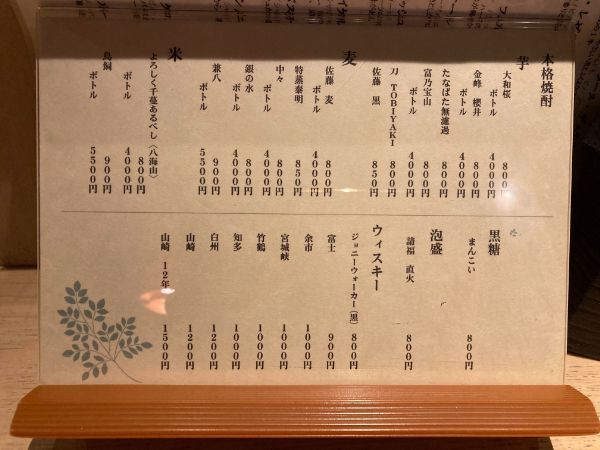 本格焼酎
芋
大和桜 800円
ボトル 4000円
金峰 櫻井 800円
ボトル 4000円
たなばた無濾過 800円
富乃宝山 800円
ボトル 4000円
刀 TOBIYAKI 800円
佐藤 黒 850円
麦
佐藤 麦 800円
ボトル 4000円
特蒸泰明 850円
中々 800円
ボトル 4000円
銀の水 800円
ボトル 4000円
兼八 900円
ボトル 5500円
米
よろしく千萬あるべし（八海山） 800円
ボトル 4000円
鳥飼 900円
ボトル 5500円
黒糖
まんこい 800円
泡盛
請福 直火 800円
ウィスキー
ジョニーウォーカー（黒） 800円
富士 900円
余市 1000円
宮城峡 1000円
竹鶴 1000円
知多 1000円
白州 1200円
山崎 1200円
山崎 12年 1500円